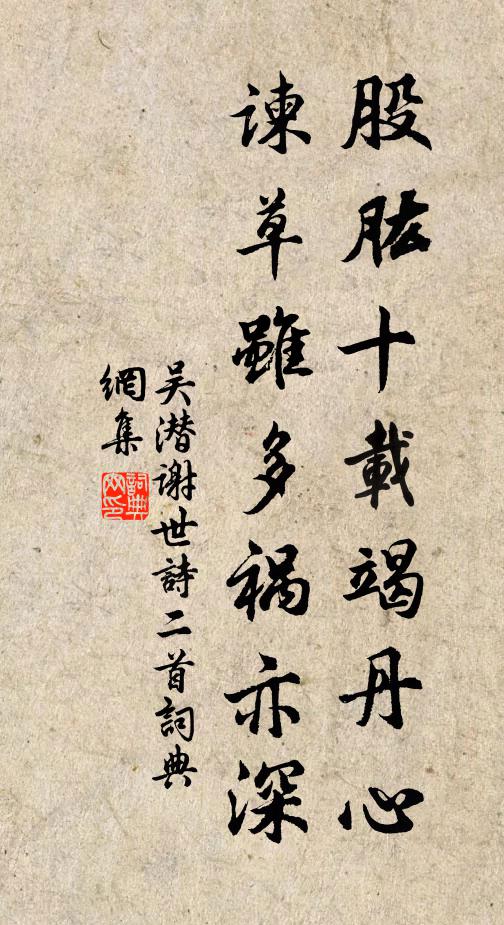 股肱十載竭丹心
諫草雖多禍亦深
吴潜謝世詩二首詞典
網集
詞典